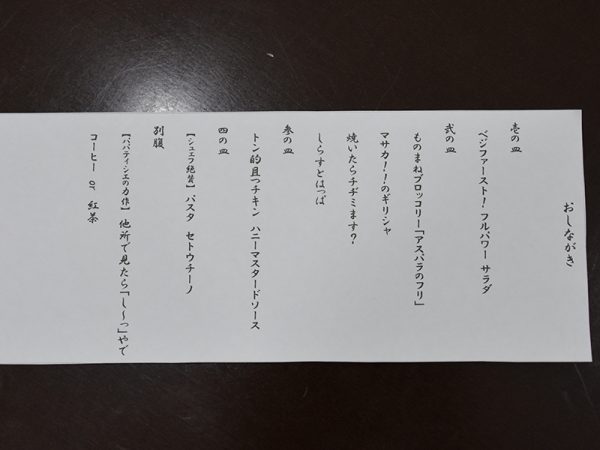 おしながき
壱の皿
ベジファースト！フルパワー サラダ
弐の皿
ものまねブロッコリー「アスパラのフリ」
マサカ！！のギリシャ
焼いたらチヂミます？
しらすとはっぱ
参の皿
トン的且つチキン ハニーマスタードソース
四の皿
【シェフ絶賛】パスタ セトウチーノ
別腹
【パパティシエの力作】他所で見たら「し〜っ」やで
コーヒー or 紅茶